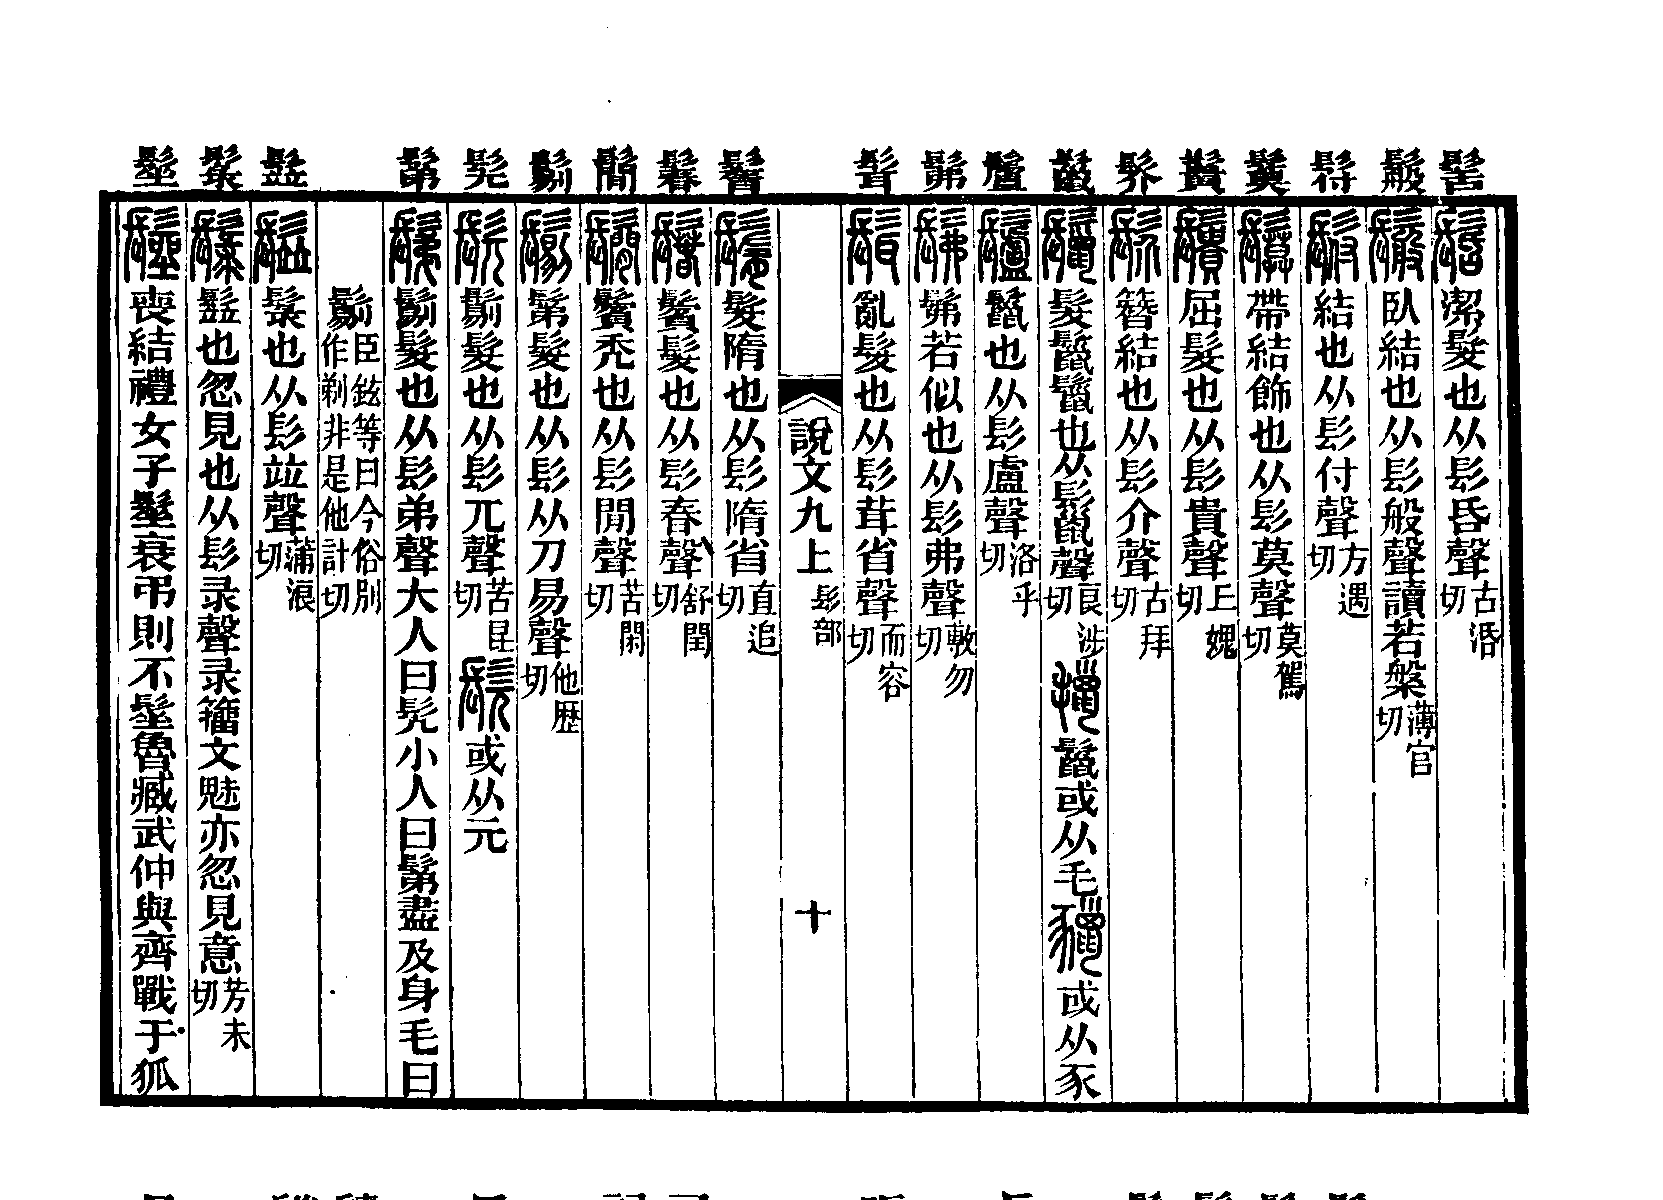 髺 䰉 䯱 鬕 䰎 䯰 鬣 䰕 髴 髶 鬌 鬊 鬜 鬄 髡 鬀 䰃 髽
髺 潔髮也从髟昏聲古活切
䰉 臥結也从髟般聲讀若槃薄官切
䯱 結也从髟付聲方遇切
鬕 帶結飾也从髟莫聲莫駕切
䰎 屈髮也从髟貴聲丘媿切
䯰 簪結也从髟介聲古拜切
鬣 髮鬣鬣也从髟巤聲良涉切 鬣或从毛 或从豕
䰕 鬣也从髟盧聲洛乎切
髴 髴若似也从髟弗聲敷勿切
髶 亂髮也从髟茸省聲而容切
說文九上 髟部 十
鬌 髮隋也从髟隋省直追切
鬊 鬢髮也从髟春聲舒閏切
鬜 鬢禿也从髟閒聲苦閑切
鬄 鬀髮也从髟从刀易聲他歷切
髡 鬄髮也从髟兀聲苦昆切 髨 或从元
鬀 鬄髮也从髟弟聲大人曰髡小人曰鬀盡及身毛曰
鬄臣鉉等曰今俗別作剃非是他計切
䰃 也从髟竝聲蒲浪切
䰃也忽見也从髟录聲录籒文魅亦忽見意芳未切
髽 喪結禮女子髽衰弔則不髽魯臧武仲與齊戰于狐